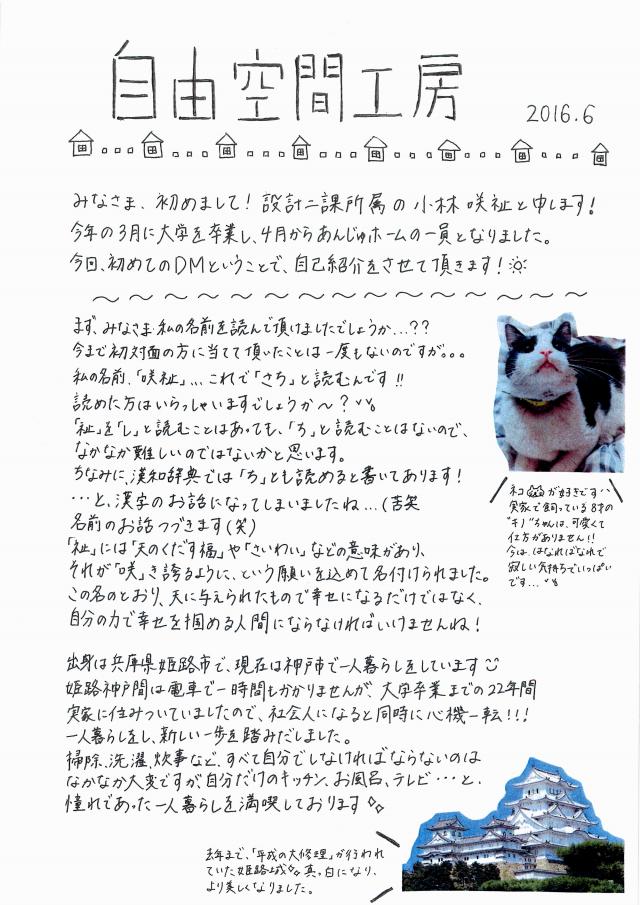 自由空間工房
2016.6
みなさま、初めまして！設計二課所属の小林咲祉と申します！
今年の3月に大学を卒業し、4月からあんじゅホームの一員となりました。
今回、初めてのDMということで、自己紹介をさせて頂きます！
まず、みなさま私の名前を読んで頂けましたでしょうか…??
今まで初対面の方に当てて頂いたことは一度もないのですが。。。
私の名前、「咲祉」…これで「さち」と読むんです!!
読めた方はいらっしゃいますでしょうか～？
「祉」を「し」と読むことはあっても、「ち」と読むことはないので、
なかなか難しいのではないかと思います。
ちなみに、漢和辞典では「ち」とも読めると書いてあります！
…と、漢字のお話になってしまいましたね…(苦笑
名前のお話つづきます(笑)
「祉」には「天のくだす福」や「さいわい」などの意味があり、
それが「咲」き誇るように、という願いを込めて名付けられました。
この名のとおり、天に与えられたもので幸せになるだけではなく、
自分の力で幸せを掴める人間にならなければいけませんね！
ネコが好きです
実家で飼っている8才の
"キノ"ちゃんは、可愛くて
仕方がありません!!
今は、はなればなれで
寂しい気持ちでいっぱい
です…
出身は兵庫県姫路市で、現在は神戸市で一人暮らしをしています
姫路神戸間は電車で一時間もかかりませんが、大学卒業までの22年間
実家に住みついていましたので、社会人になると同時に心機一転!!!
一人暮らしをし、新しい一歩を踏みだしました。
掃除、洗濯、炊事など、すべて自分でしなければならないのは
なかなか大変ですが自分だけのキッチン、お風呂、テレビ…と、
憧れであった一人暮らしを満喫しております
去年まで、「平成の大修理」が行われ
ていた姫路城 真っ白になり、
より美しくなりました。